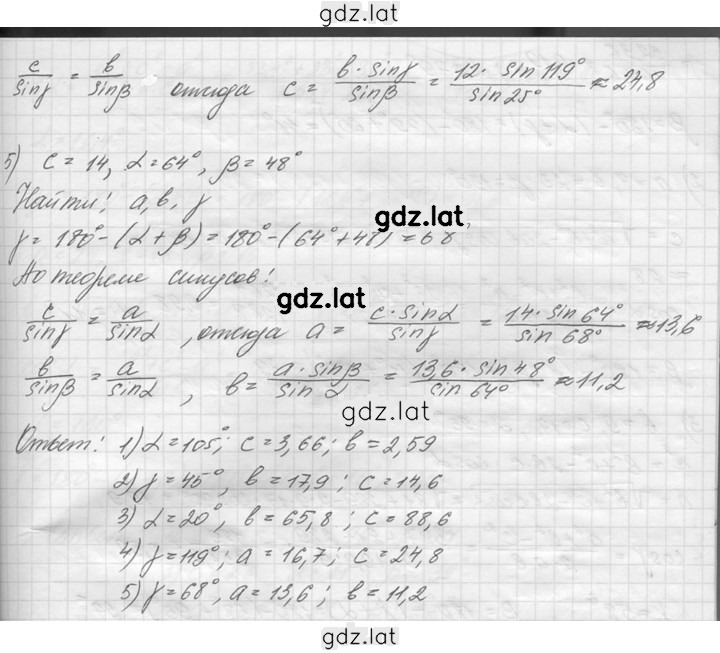 gdz.lat
c/sinγ = b/sinβ отсюда c = b·sinγ/sinβ = 12·sin119°/sin25° ≈ 24,8
5) c = 14, α = 64°, β = 48°
Найти: a, b, γ
gdz.lat
γ = 180° - (α + β) = 180° - (64° + 48°) = 68°
По теореме синусов:
gdz.lat
c/sinγ = a/sinα, отсюда a = c·sinα/sinγ = 14·sin64°/sin68° ≈ 13,6
b/sinβ = a/sinα, b = a·sinβ/sinα = 13,6·sin48°/sin64° ≈ 11,2
gdz.lat
Ответ: 1) α = 105°; c = 3,66; b = 2,59
2) γ = 45°, b = 17,9; c = 14,6
3) α = 20°, b = 65,8; c = 88,6
4) γ = 119°; a = 16,7; c = 24,8
5) γ = 68°, a = 13,6; b = 11,2
gdz.lat